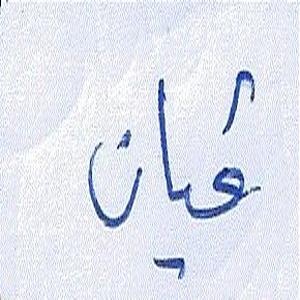 عيان